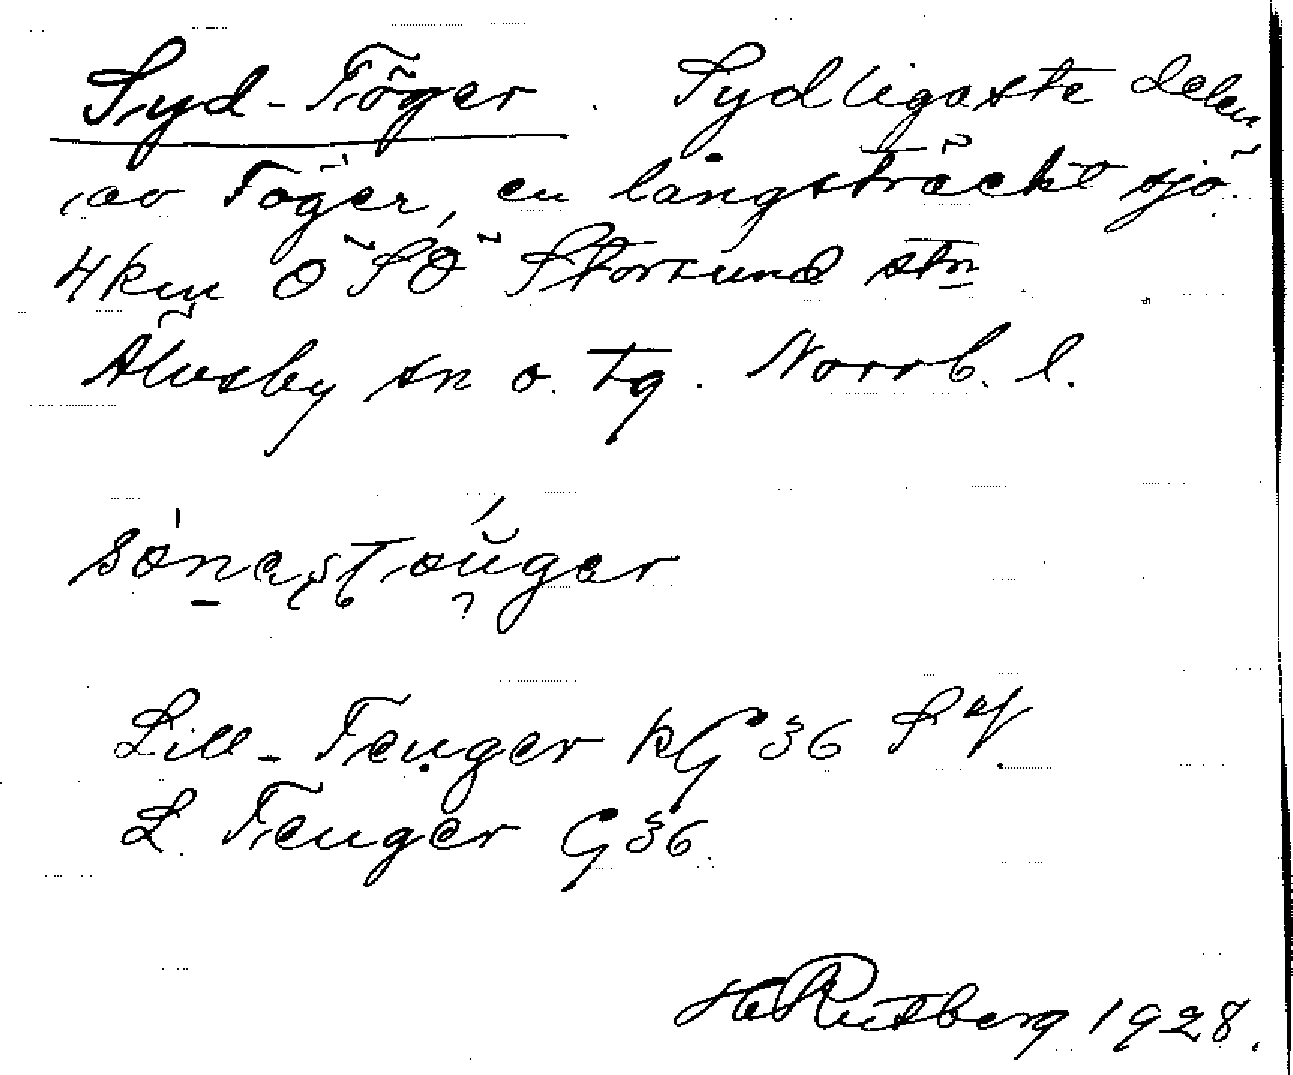 Syd-Töger. Sydligaste delen
av Töger, en långsträckt sjö
4 km Ö SÖ Storsund stn
Älvsby sn o. tg. Norrb. l.
Lill-Teuger kG 36 S
L. Teuger G 36
H Rutberg 1928.